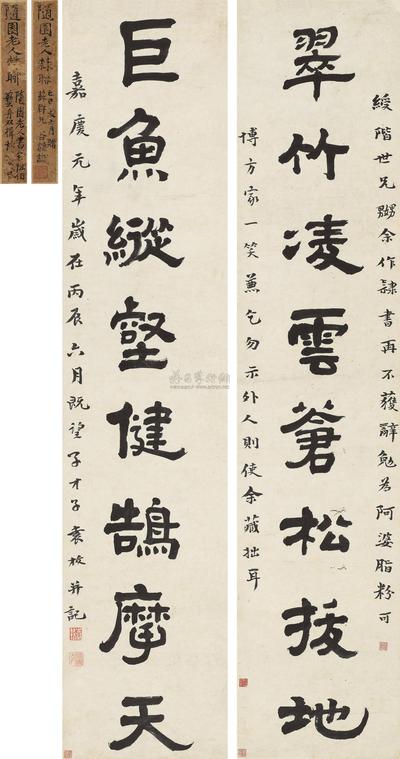 翠竹凌雲蒼松拔地
綬階世兄嬲余作隸書再不獲辭勉為阿婆脂粉可
博方家一笑兼乞勿示外人則使余藏拙耳
巨魚縱壑健鵠摩天
嘉慶元年歲在丙辰六月既望子才子袁枚并記
隨園老人
隨園老人